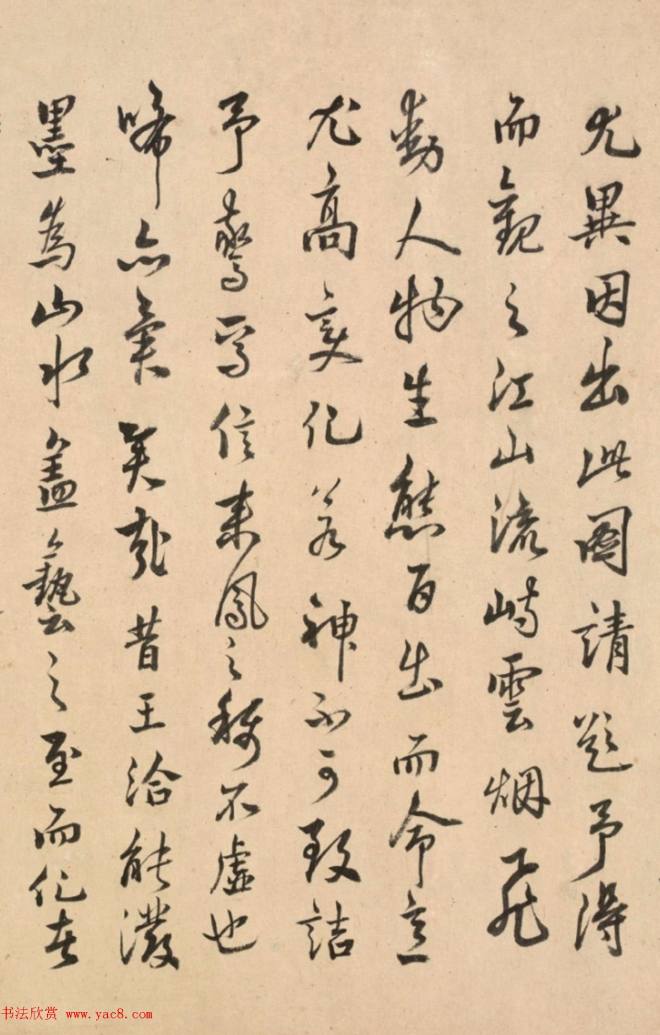 尤異因出此圖請題予得
而觀之江山流峙雲烟飛
動人物生態百出而命意
尤高變化若神不可致詰
予驚焉信來鳳之稱不虛也
唏亦奇矣哉昔王洽能潑
墨為山水蓋藝之至而化者
书法欣赏 www.yac8.com